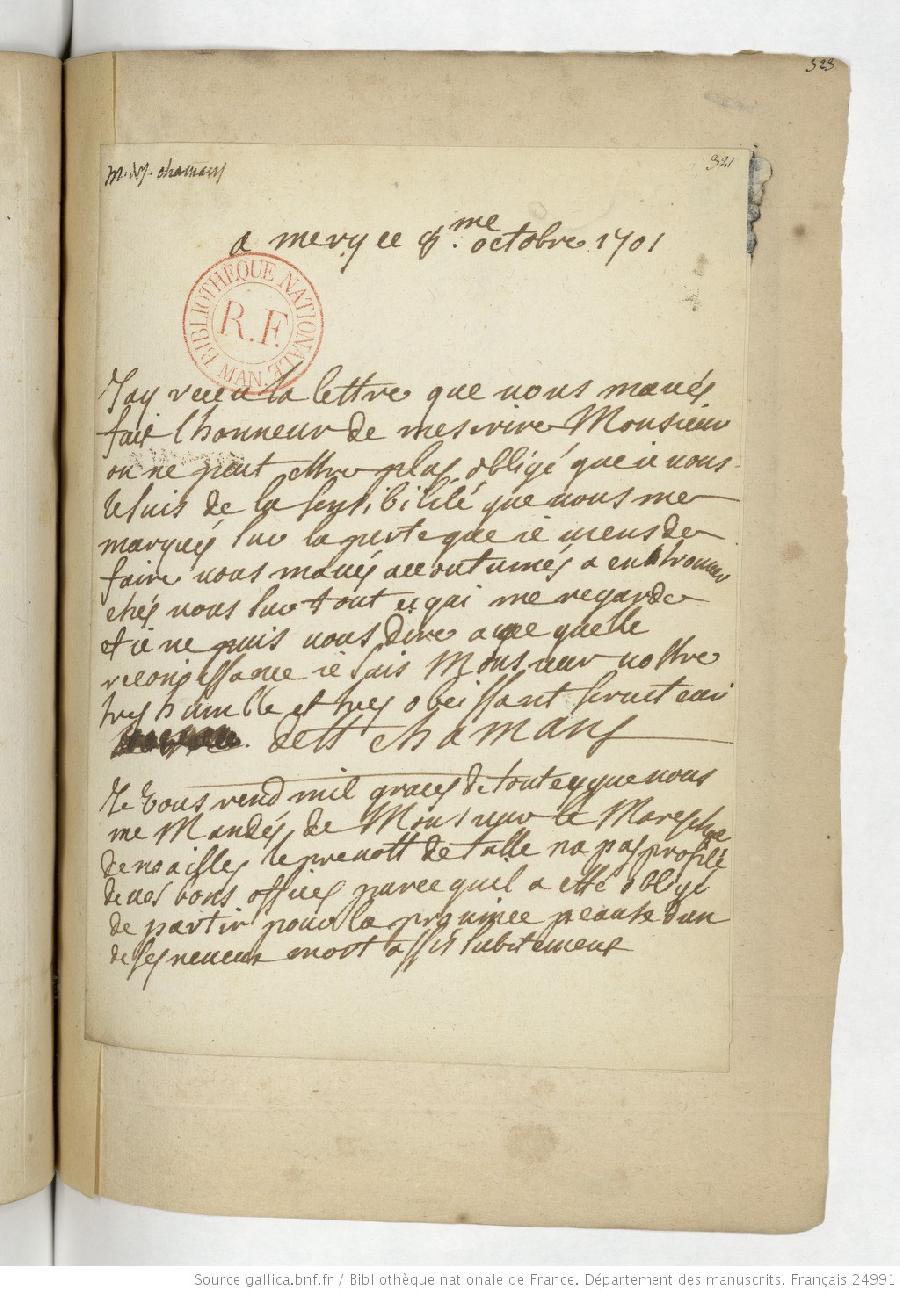 323
321
a mery ce 8.me octobre 1701
BIBLIOTHEQUE NATIONALE
R.F.
MAN.
Jay receu la lettre que vous mavés
fait lhonneur de mescrire Monsieur
on ne peut estre plus obligé que ie vous
le suis de la sensibilité que vous me
marqués sur la perte que ie viens de
faire vous mavés accoutumés a en trouver
chés vous sur tout ce qui me regarde
et ie ne puis vous dire avec quelle
reconoissance ie suis Monsieur vostre
tres humble et tres obeissant serviteur
de st chamans
Je vous rend mil graces de tout ce que vous
me Mandés de Monsieur le Mareschal
de noailles le prevost de tulle na pas profité
de ces bons offices parce quel a esté obligé
de partir pour la province a cause dun
de ses neveux mort assés subitement
Source gallica.bnf.fr / Bibliothèque nationale de France. Département des manuscrits. Français 24991